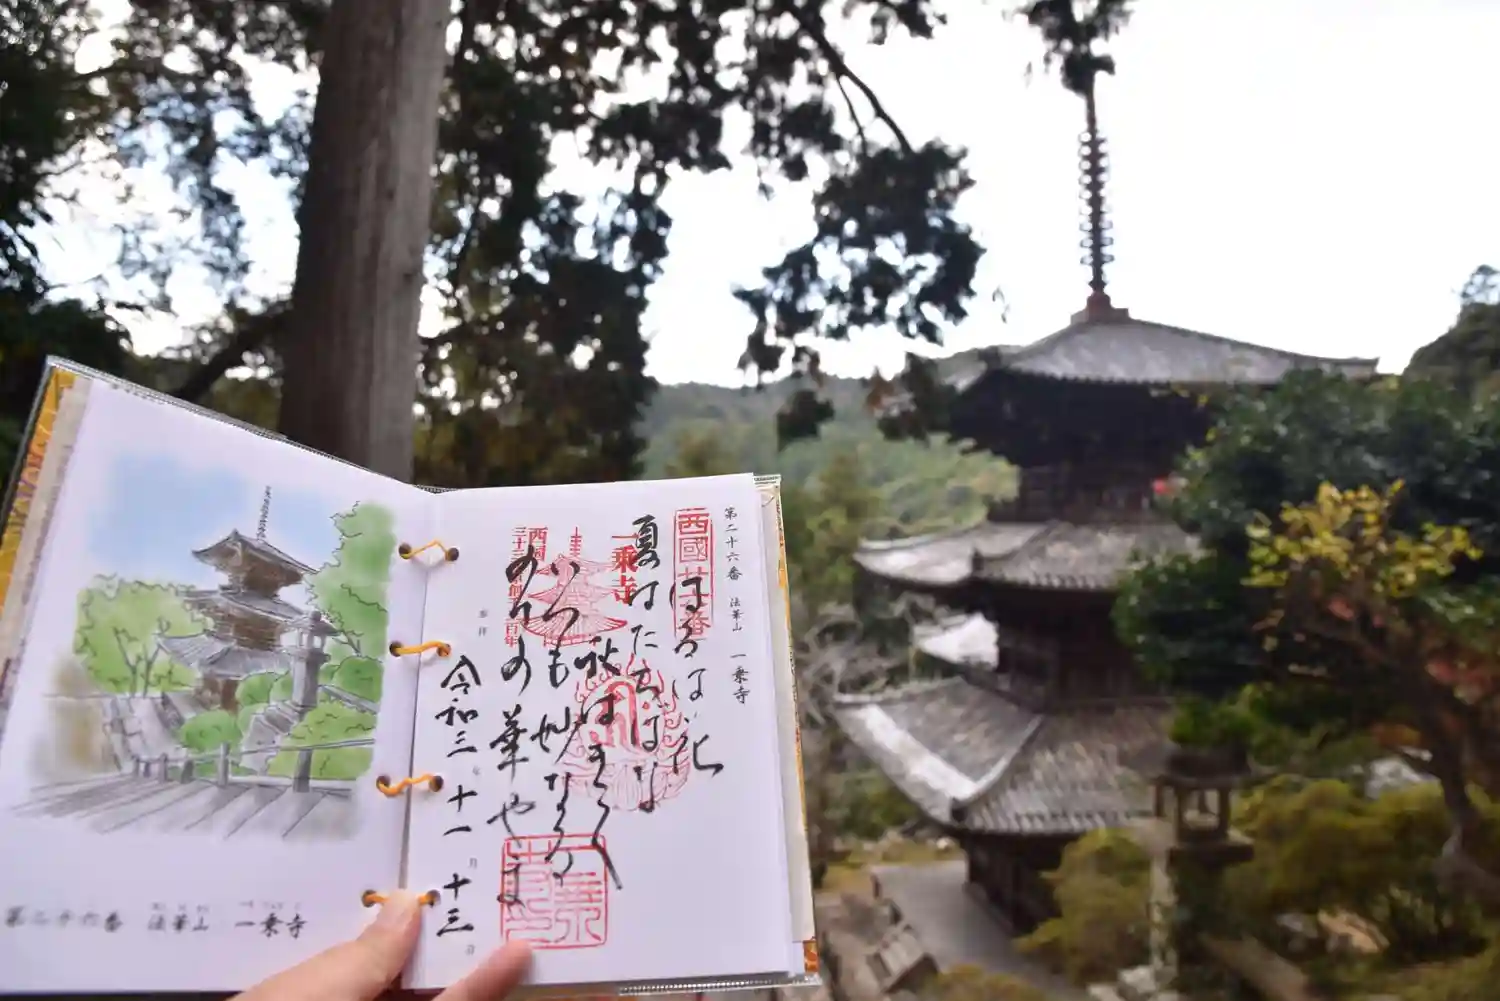 第二十六番 法華山 一乗寺
西國廿六番
はるは花
夏はたちばな
秋はきく
いつも妙なる
のりの華やま
一乗寺
西国
三十三所
奉拝
令和三年十一月十三日
第二十六番 法華山 一乗寺